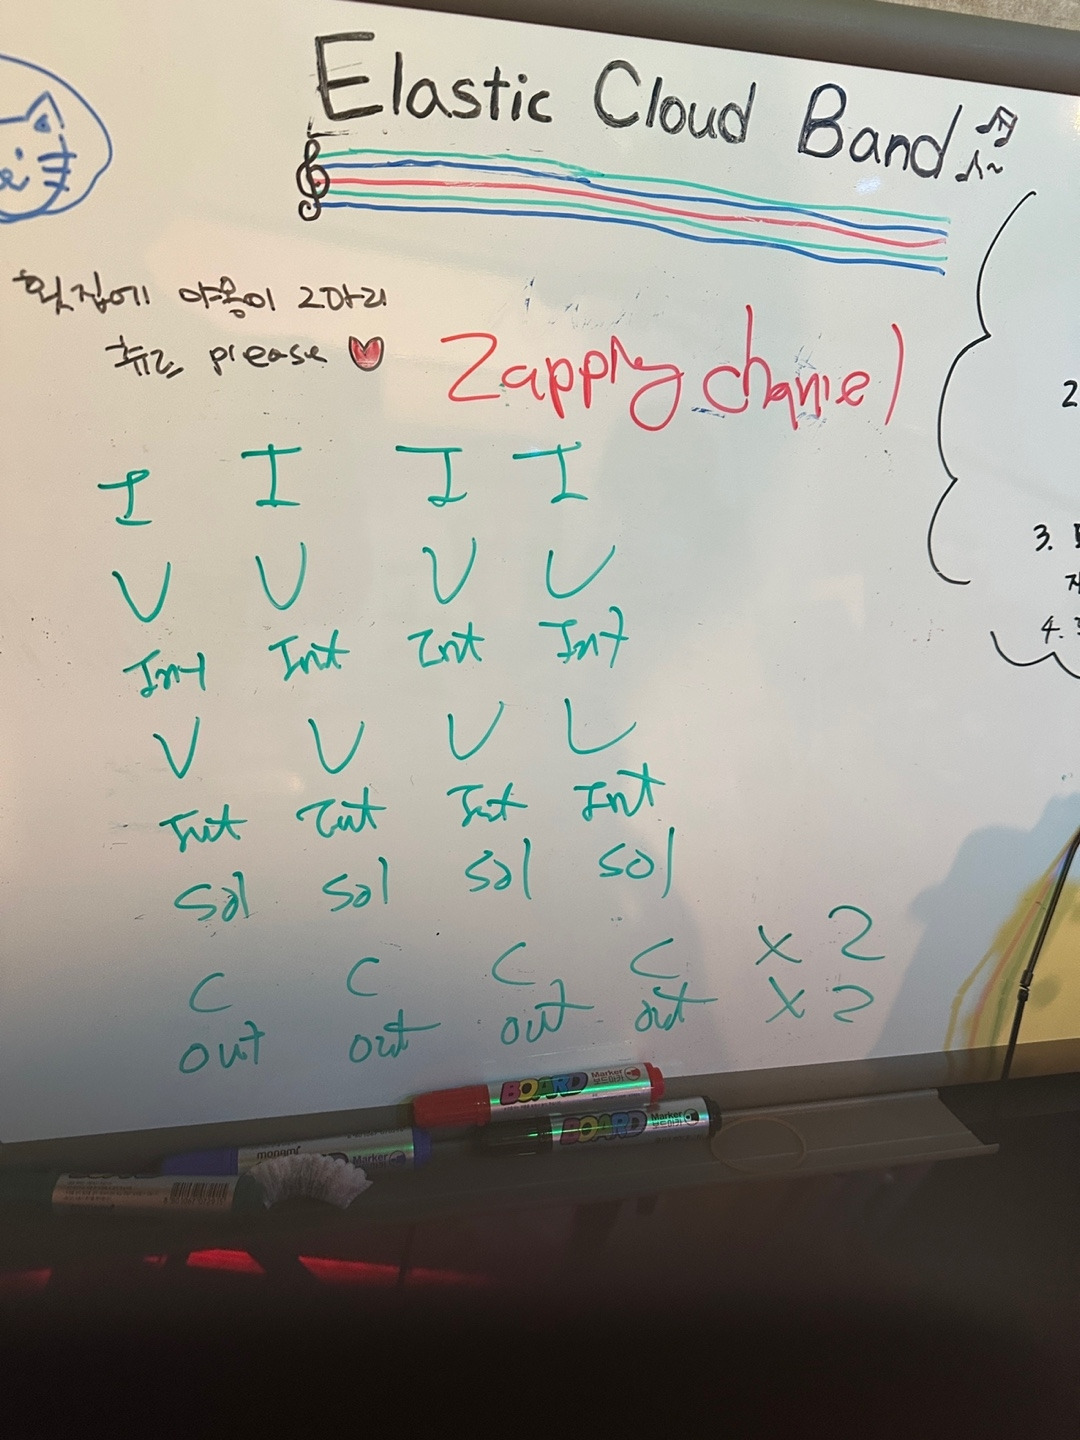 Elastic Cloud Band
횟집에 야옹이 2마리
츄르 please
Zapply channel
I I I I
V V V V
Int Int Int Int
V V V V
Int Int Int Int
Sol Sol Sol Sol
C C C C x 2
out out out out x 2
2
3.
4.
BOARD Marker 보드마카
BOARD Marker
monami Marker